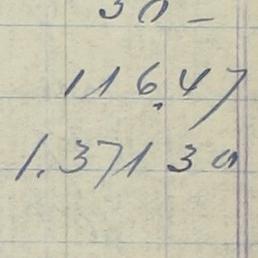 30 -
116.47
1.371 30